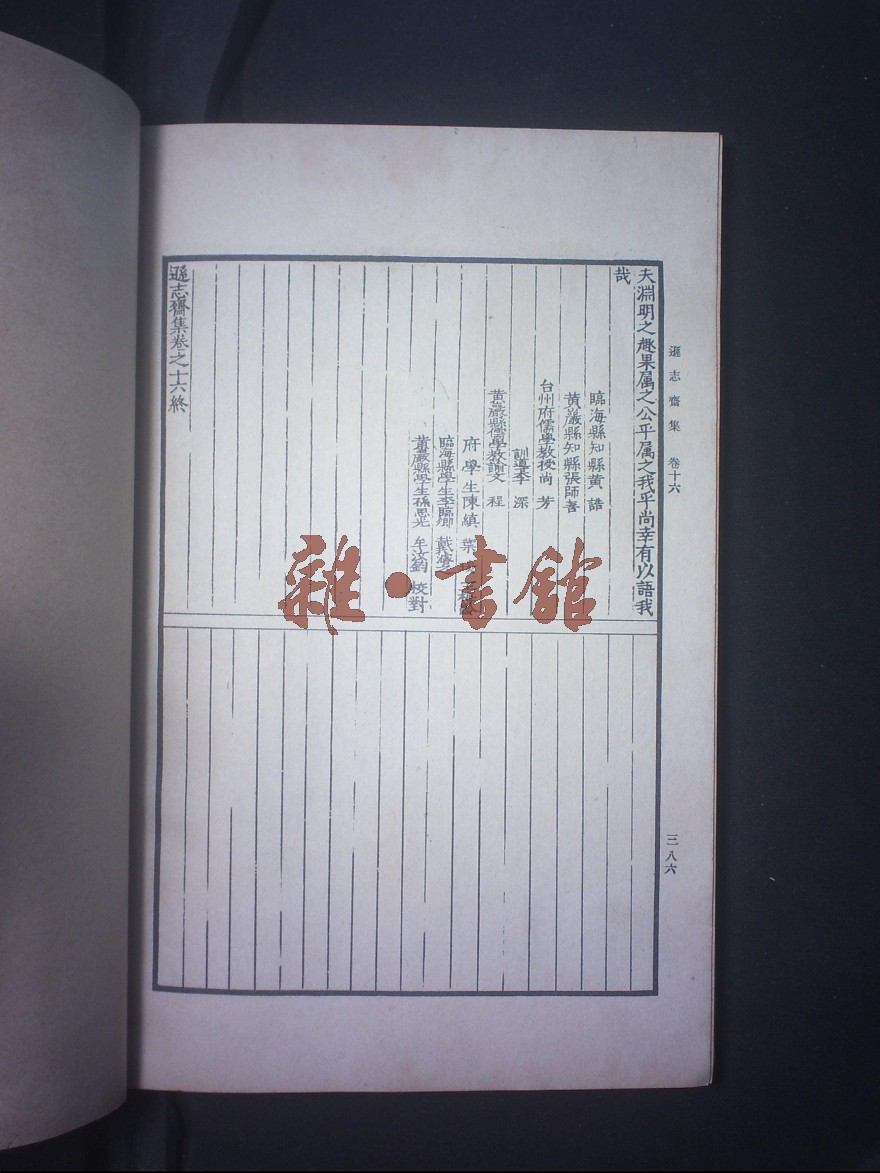 遜志齋集 卷十六
三八六
夫淵明之趣果属之公乎属之我乎尚幸有以語我
哉
臨海縣知縣黃誥
黃巖縣知縣張師善
台州府儒學教授尚芳
訓導李深
黃巖縣儒學教諭文程
府學生陳縝葉
臨海縣學生李臨卿戴
黃巖縣學生孫思光牟汝鈞校對
遜志齋集卷之十六終
雜·書館